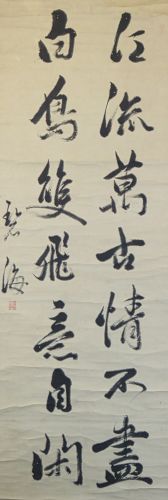 江流萬古情不盡
白鳥雙飛意自閑
碧海